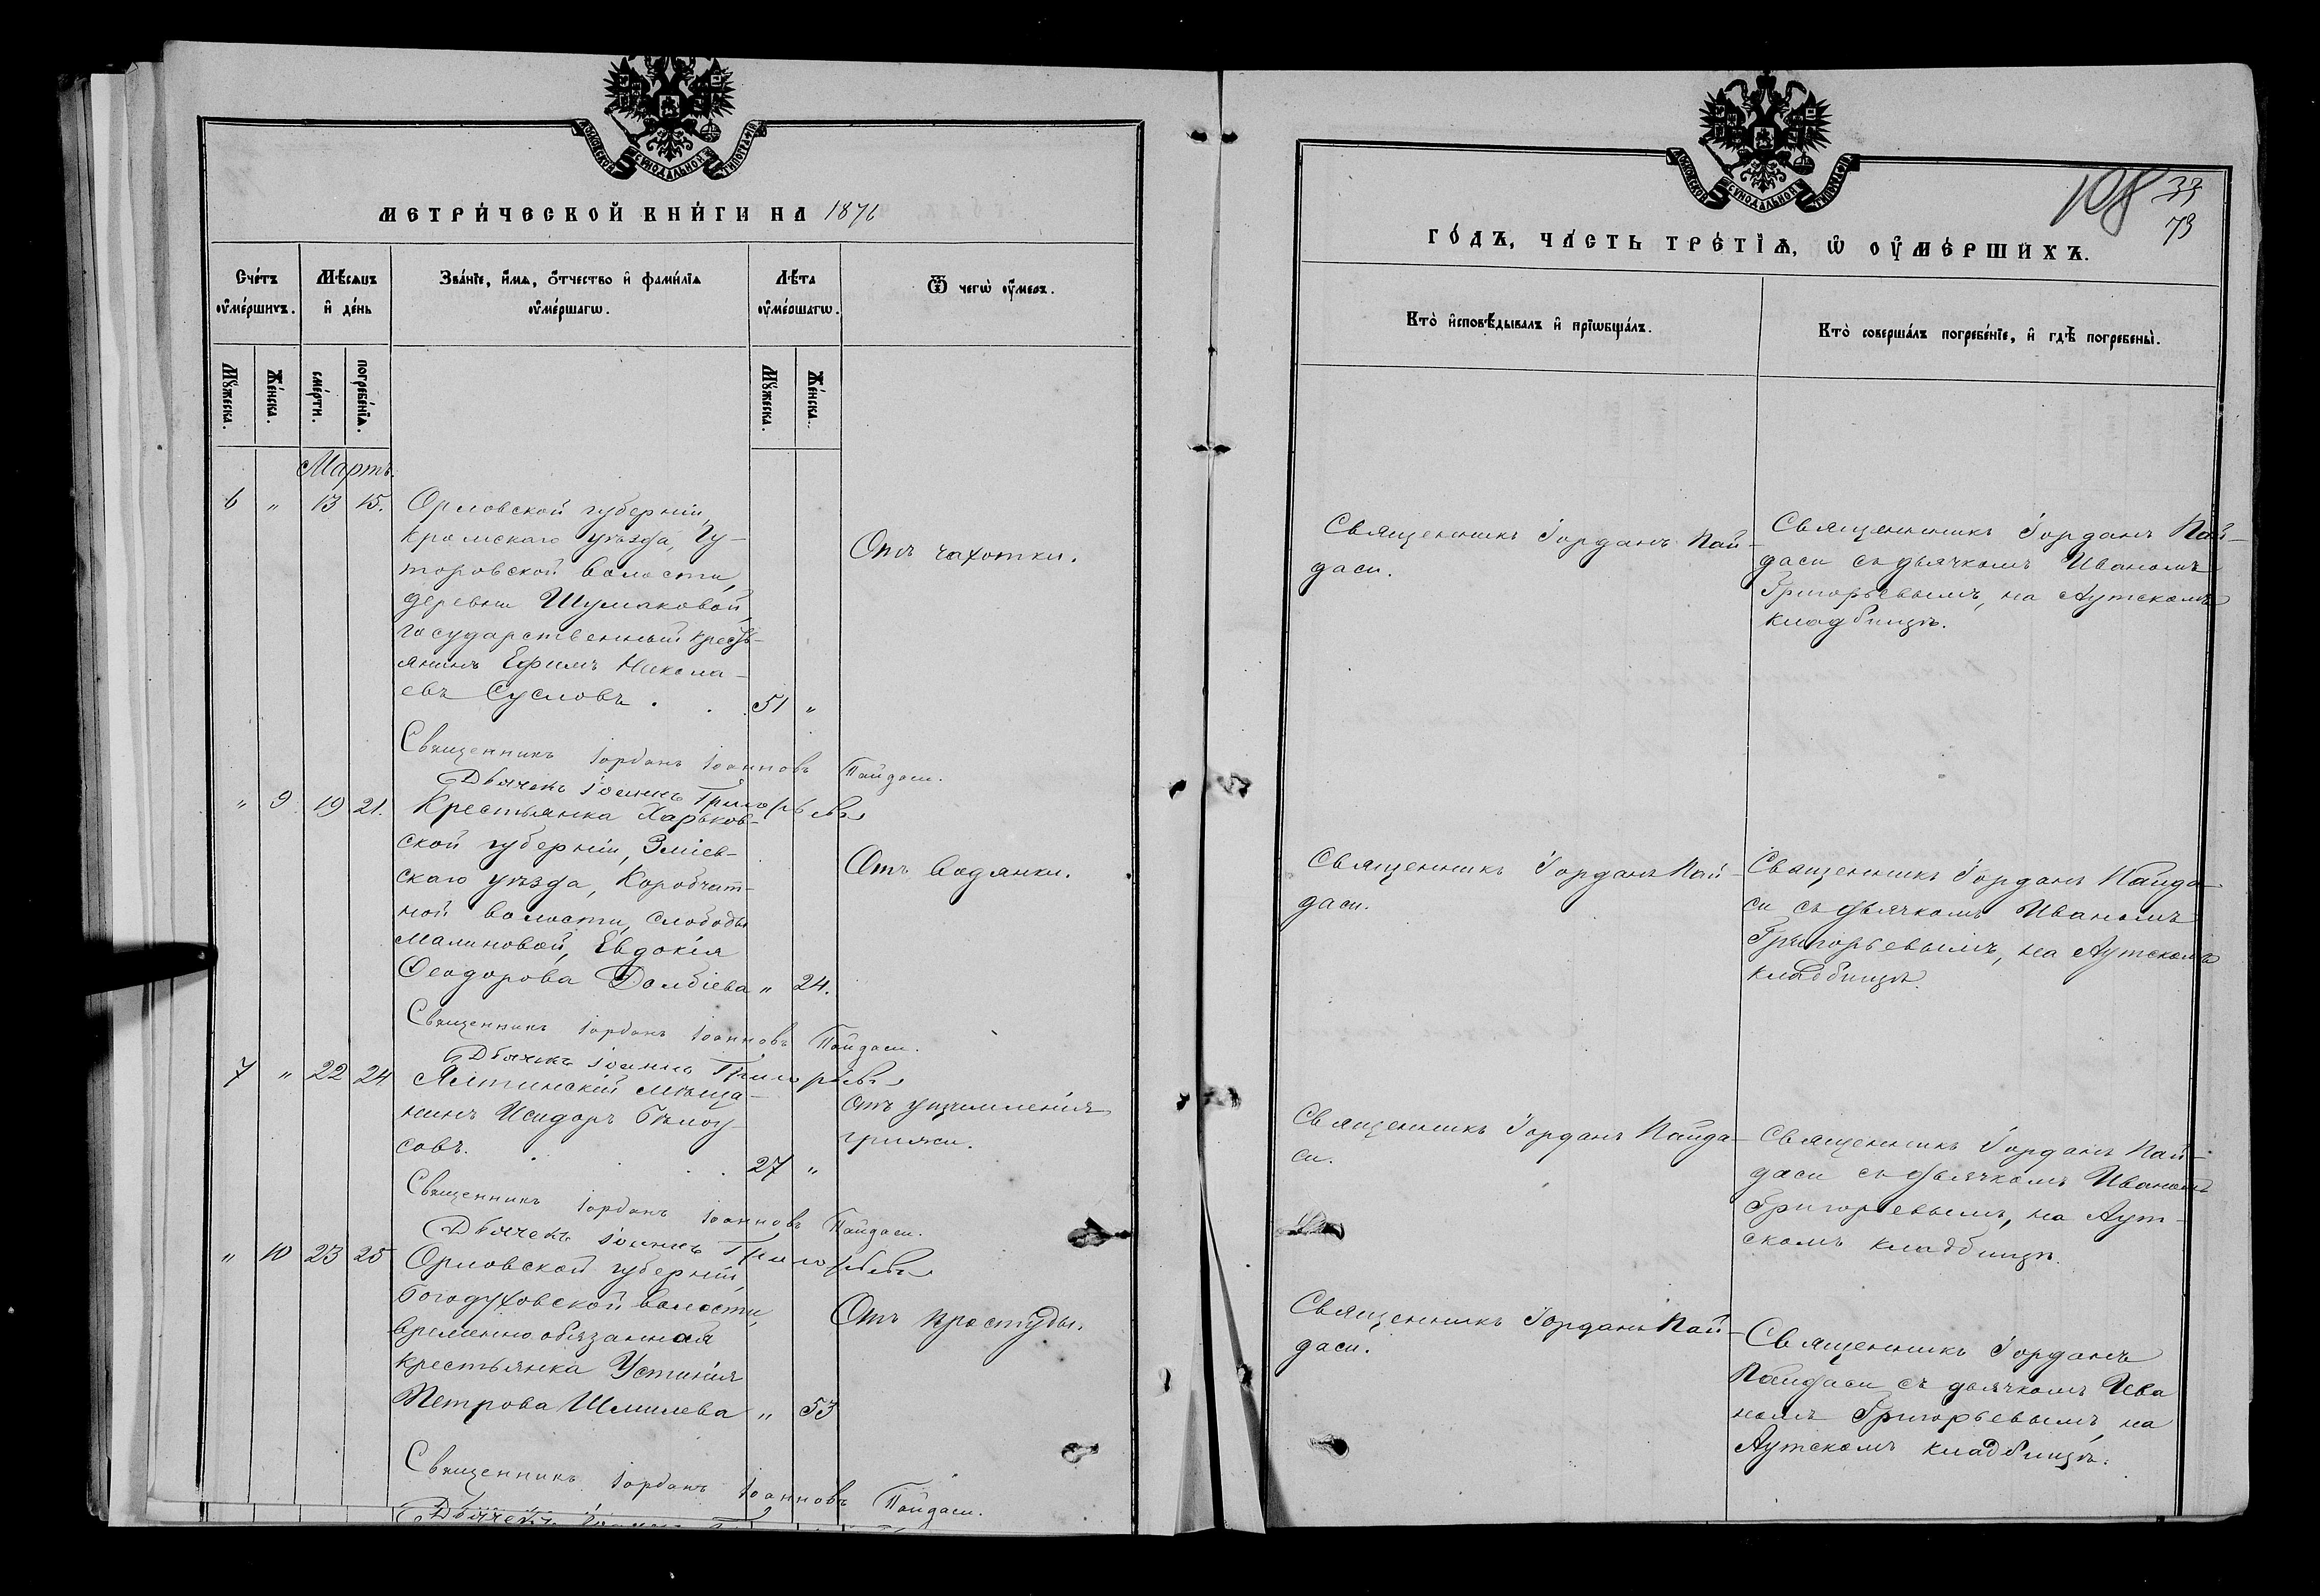 МОСКОВСКОЙ СѴНОДАЛЬНОЙ ТИПОГРАФІИ
МЕТРИ́ЧЕСКОЙ КНИ́ГИ НА 1876
Сче́тъ ᲂу҆ме́ршихъ.
Мѣ́сѧцъ и҆ де́нь
Зва́нїе, и҆́мѧ, ѻ҆́тчество и҆ фами́лїѧ ᲂу҆ме́ршагѡ.
Лѣ́та ᲂу҆ме́ршагѡ.
Ѿ чегѡ̀ ᲂу҆́меръ.
Мꙋ́жеска.
Же́нска.
сме́рти.
погребе́нїѧ.
Мꙋ́жеска.
Же́нска.
Мартъ.
6 " 13 15. Орловской губерніи,
Кромскаго уѣзда, Гу-
торовской волости,
деревни Шумаковой,
государственный кресть-
янинъ Ефимъ Никола-
евъ Сусловъ . . . 51 "
Отъ чахотки.
Священникъ Іорданъ Іоанновъ Пайдаси.
Дьячекъ Іоаннъ Григорьевъ
" 9 19 21. Крестьянка Харьков-
ской губерніи, Зміев-
скаго уѣзда, Коробчат-
ной волости, слободы
Малиновой, Евдокія
Ѳеодорова Долбіева " 24.
Отъ водянки.
Священникъ Іорданъ Іоанновъ Пайдаси.
Дьячекъ Іоаннъ Григорьевъ
7 " 22 24 Ялтинскій мѣща-
нинъ Исидоръ Бѣлоу-
совъ. . . . 27 "
Отъ ущемленія
грыжи.
Священникъ Іорданъ Іоанновъ Пайдаси.
Дьячекъ Іоаннъ Григорьевъ
" 10 23 25 Орловской губерніи,
Богодуховской волости,
временно обязанная
крестьянка Устинія
Петрова Шмилева " 53
Отъ простуды.
Священникъ Іорданъ Іоанновъ Пайдаси.
Дьячекъ Іоаннъ
МОСКОВСКОЙ СѴНОДАЛЬНОЙ ТИПОГРАФІИ
108 33
73
ГО́ДЪ, ЧА́СТЬ ТРЕ́ТЇѦ, Ѡ҆ ОУ҆МЕ́РШИХЪ.
Кто̀ и҆сповѣ́дывалъ и҆ прїѡбща́лъ.
Кто̀ соверша́лъ погребе́нїе, и҆ гдѣ̀ погребены̀.
Священникъ Іорданъ Пай-
даси.
Священникъ Іорданъ Пай-
даси съ дьячкомъ Иваномъ
Григорьевымъ, на Аутскомъ
кладбищѣ.
Священникъ Іорданъ Пай-
даси.
Священникъ Іорданъ Пайда-
си съ дьячкомъ Иваномъ
Григорьевымъ, на Аутскомъ
кладбищѣ.
Священникъ Іорданъ Пайда-
си.
Священникъ Іорданъ Пай-
даси съ дьячкомъ Иваномъ
Григорьевымъ, на Аут-
скомъ кладбищѣ.
Священникъ Іорданъ Пай-
даси.
Священникъ Іорданъ
Пайдаси съ дьячкомъ Ива
номъ Григорьевымъ, на
Аутскомъ кладбищѣ.